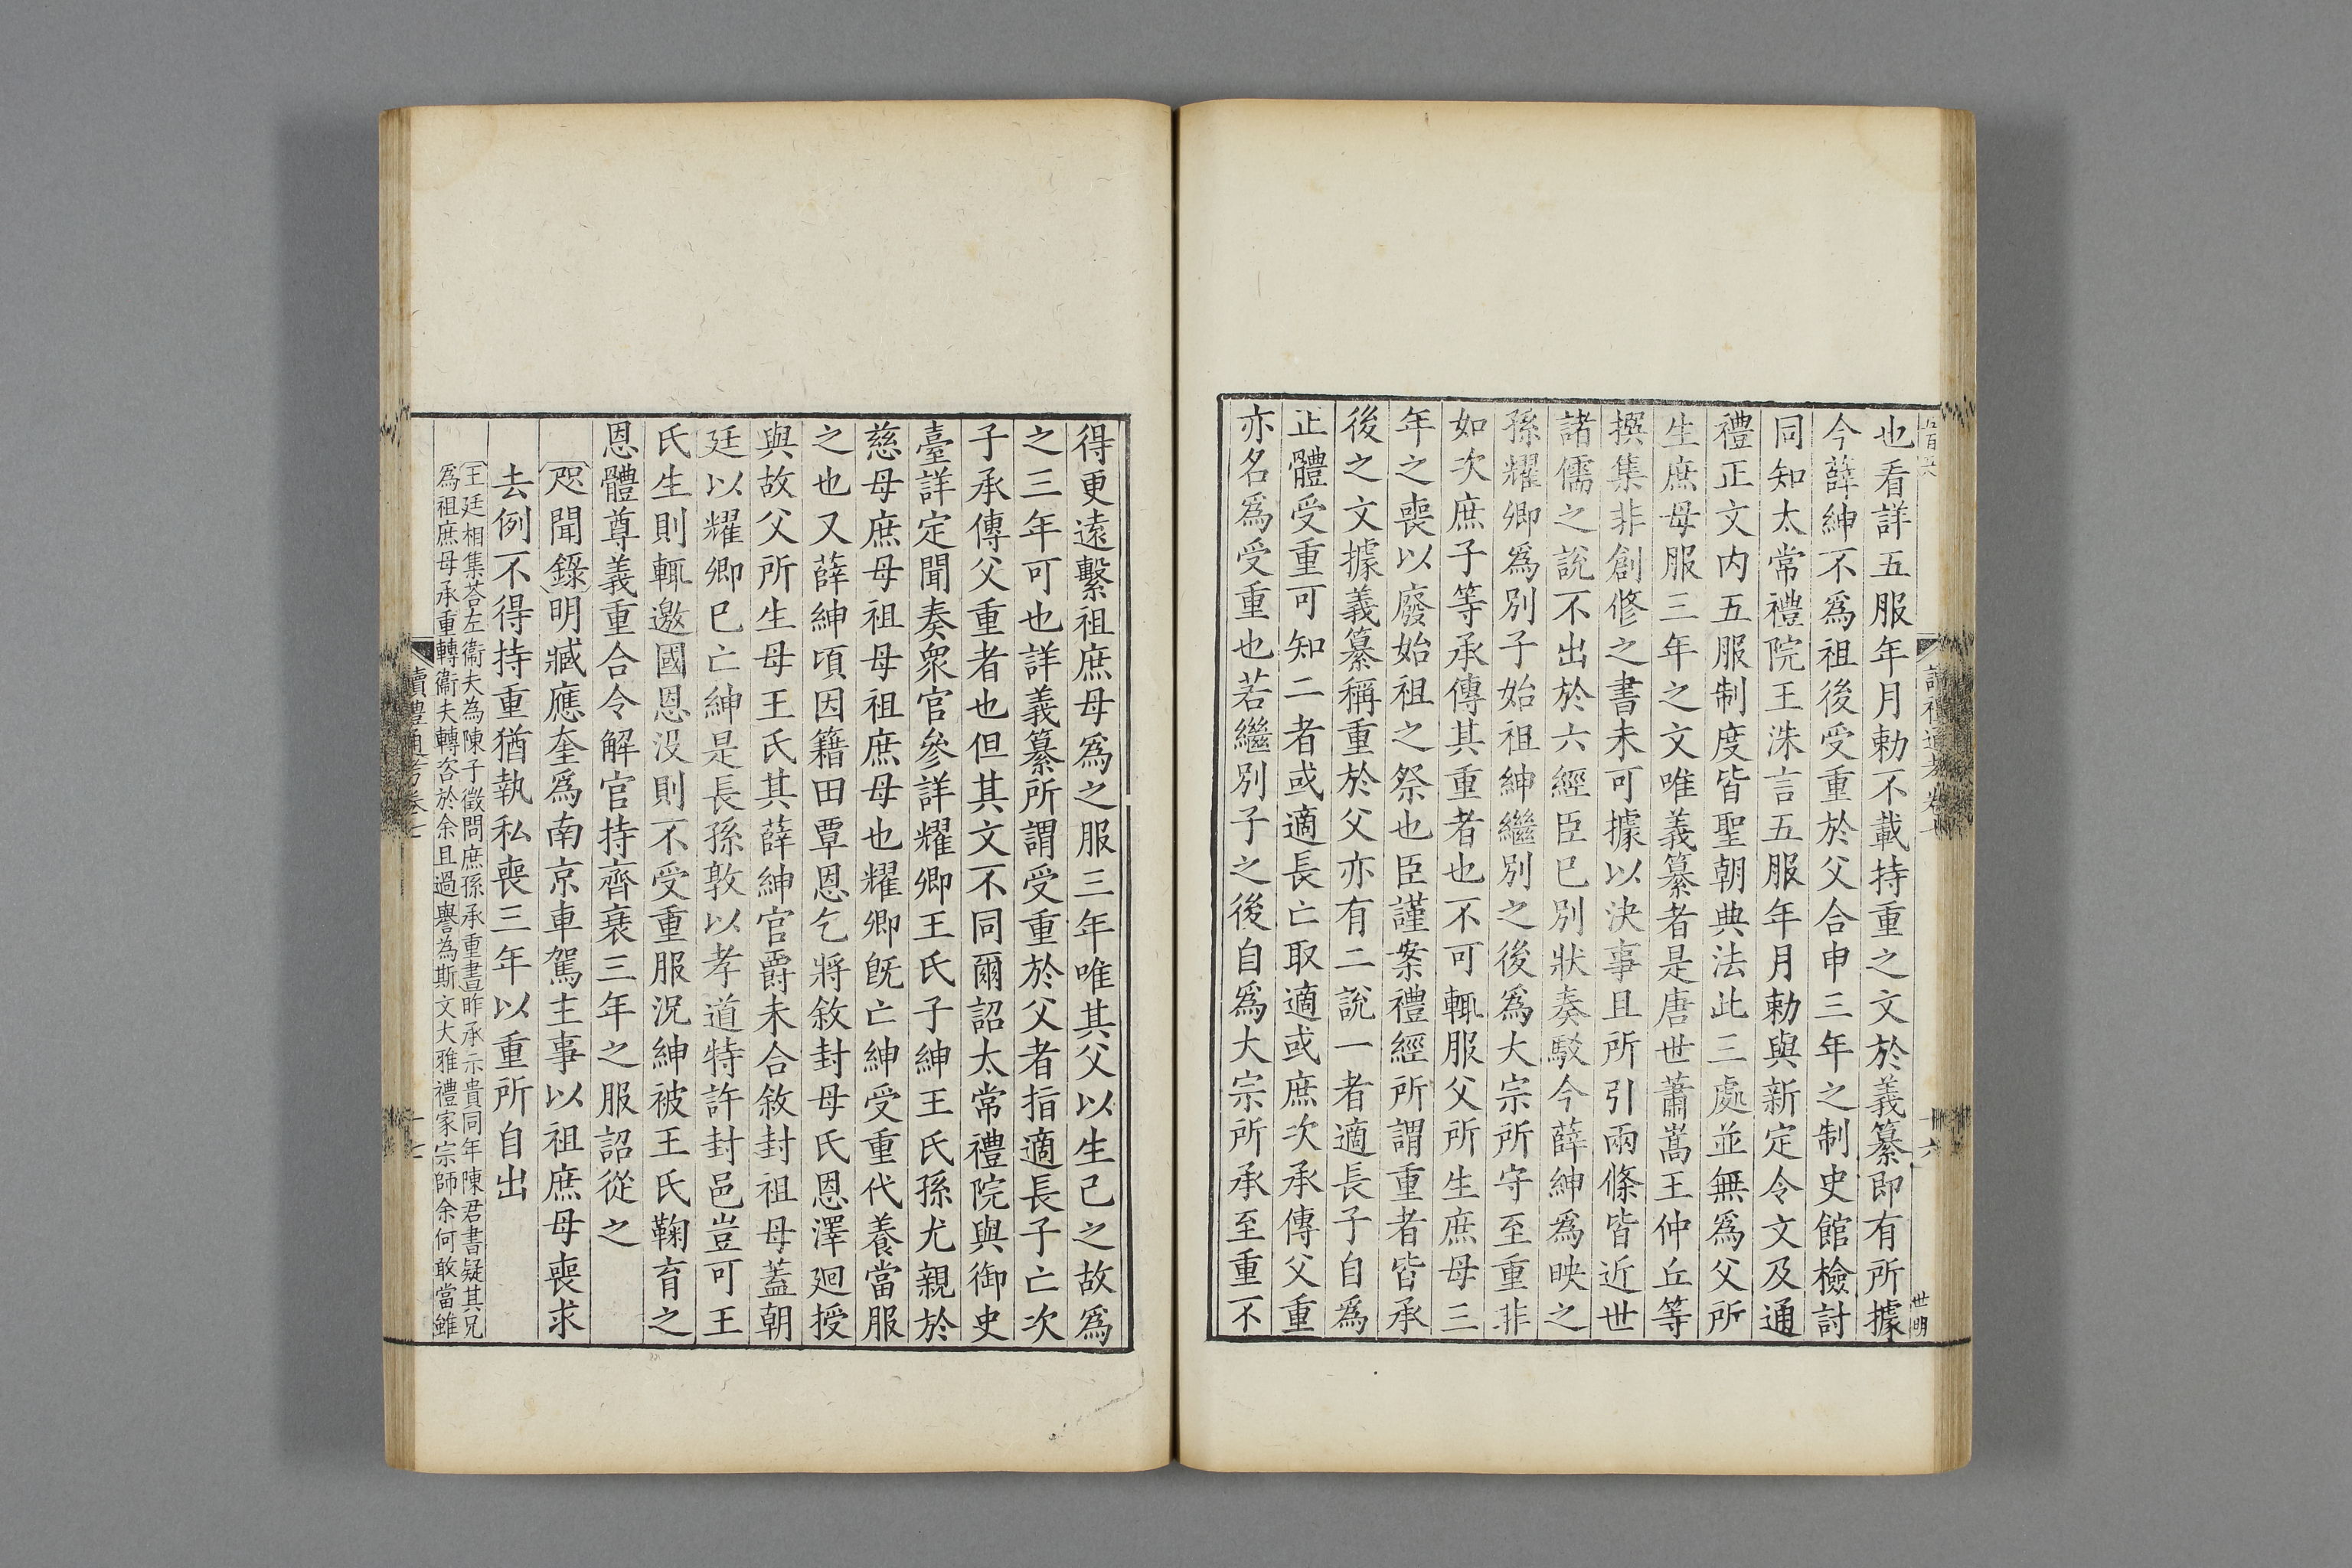 也看詳五服年月勅不載持重之文於義纂即有所據
今薛紳不爲祖後受重於父合申三年之制史館檢討
同知太常禮院王洙言五服年月勅與新定令文及通
禮正文内五服制度皆聖朝典法此三處並無爲父所
生庶母服三年之文唯義纂者是唐世蕭嵩王仲丘等
撰集非創修之書未可據以決事且所引兩條皆近世
諸儒之說不出於六經臣已別狀奏駁今薛紳爲映之
孫耀卿爲別子始祖紳繼別之後爲大宗所守至重非
如次庶子等承傳其重者也不可輒服父所生庶母三
年之喪以廢始祖之祭也臣謹案禮經所謂重者皆承
後之文據義纂稱重於父亦有二說一者適長子自爲
正體受重可知二者或適長亡取適或庶次承傳父重
亦名爲受重也若繼別子之後自爲大宗所承至重不
得更遠繫祖庶母爲之服三年唯其父以生己之故爲
之三年可也詳義纂所謂受重於父者指適長子亡次
子承傳父重者也但其文不同爾詔太常禮院與御史
臺詳定聞奏衆官參詳耀卿王氏子紳王氏孫尤親於
慈母庶母祖母祖庶母也耀卿既亡紳受重代養當服
之也又薛紳頃因籍田覃恩乞將敘封母氏恩澤廻授
與故父所生母王氏其薛紳官爵未合敘封祖母蓋朝
廷以耀卿已亡紳是長孫敦以孝道特許封邑豈可王
氏生則輒邀國恩没則不受重服況紳被王氏鞠育之
恩體尊義重合令解官持齊衰三年之服詔從之
咫聞錄明臧應奎爲南京車駕主事以祖庶母喪求
去例不得持重猶執私喪三年以重所自出
王廷相集荅左衞夫為陳子徵問庶孫承重書昨承示貴同年陳君書疑其兄
為祖庶母承重轉衞夫轉咨於余且過譽為斯文大雅禮家宗師余何敢當雖
讀禮通考卷七
十七
十六
世明